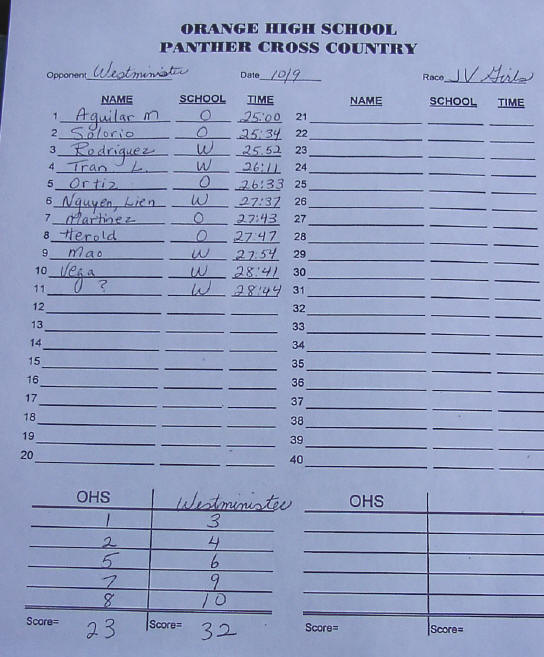 ORANGE HIGH SCHOOL
PANTHER CROSS COUNTRY
Opponent Westminister Date 10/9 Race JV Girls
NAME SCHOOL TIME NAME SCHOOL TIME
1 Aguilar M O 25:00 21
2 Solorio O 25:34 22
3 Rodriguez W 25:52 23
4 Tran L. W 26:11 24
5 Ortiz O 26:33 25
6 Nguyen, Lien W 27:37 26
7 Martinez O 27:43 27
8 Herold O 27:47 28
9 Mao W 27:54 29
10 Vega W 28:41 30
11 ? W 28:44 31
12 32
13 33
14 34
15 35
16 36
17 37
18 38
19 39
20 40
OHS Westminister OHS
1 3
2 4
5 6
7 9
8 10
Score= 23 Score= 32 Score= Score=